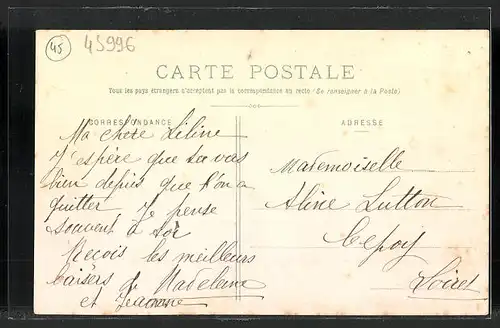 45
45996
CARTE POSTALE
Tous les pays étrangers n'acceptent pas la correspondance au recto (Se renseigner à la Poste)
CORRESPONDANCE
Ma chère Liline
J'espère que tu vas
bien depuis que l'on a
quitter Je pense
souvent à toi
Reçois les meilleurs
baisers d Madeleine
et Jeanne
ADRESSE
Mademoiselle
Aline Lutton
Cepoy
Loiret